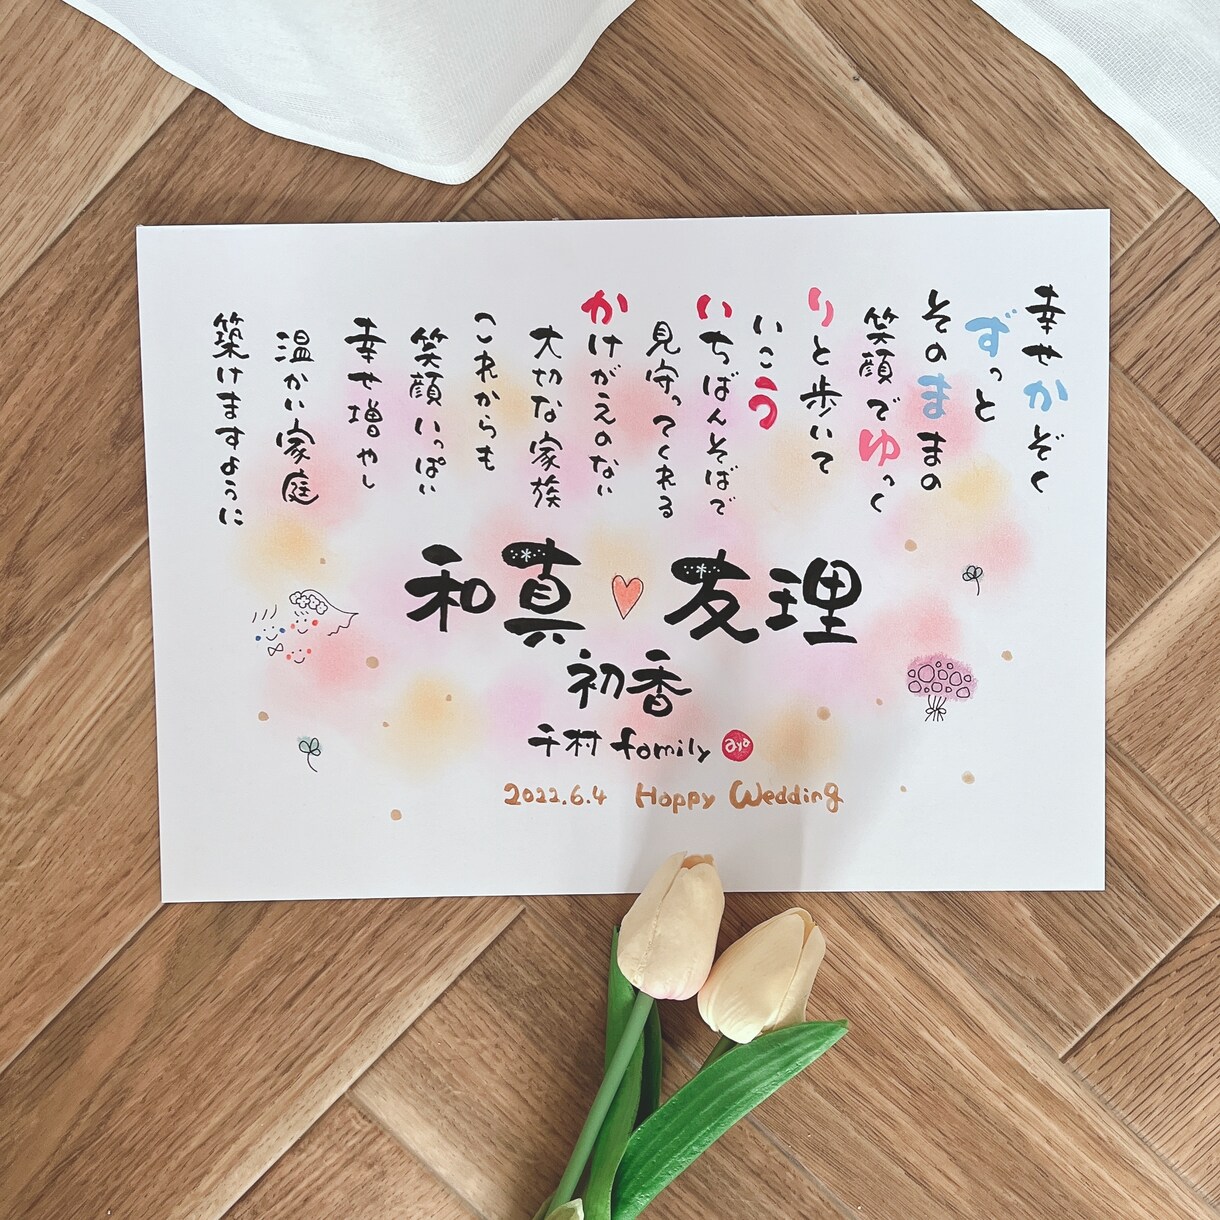 幸せかぞく
ずっと
そのままの
笑顔でゆっく
りと歩いて
いこう
いちばんそばで
見守ってくれる
かけがえのない
大切な家族
これからも
笑顔いっぱい
幸せ増やし
温かい家庭
築けますように
和真 友理
初香
千村 family aya
2022.6.4 Happy Wedding